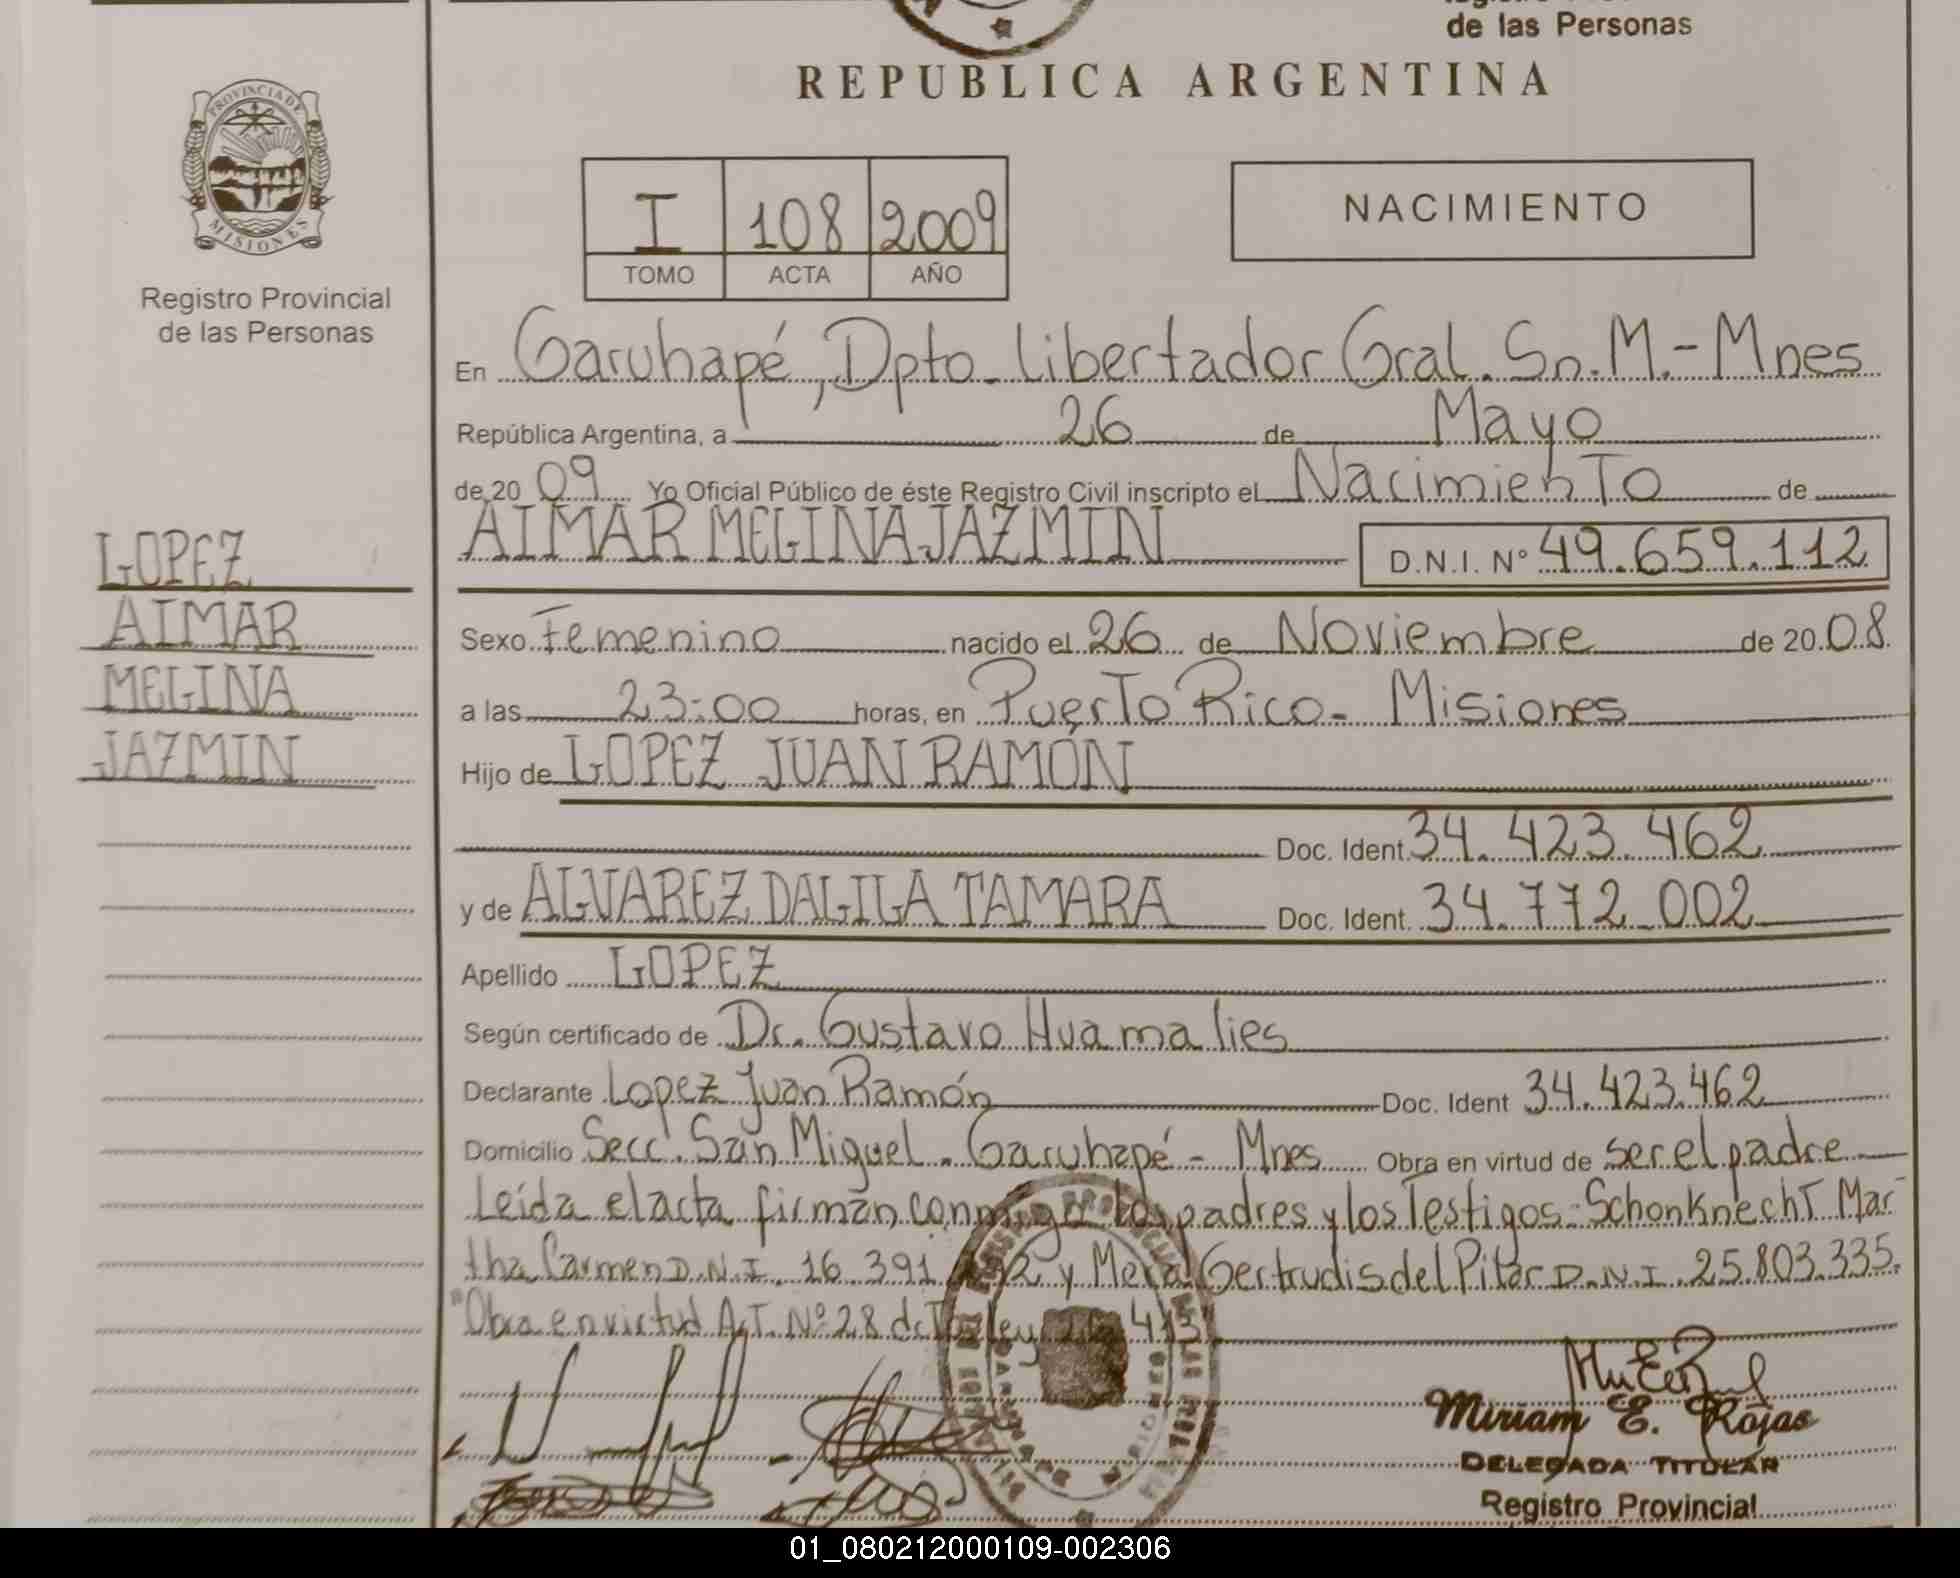 de las Personas
REPUBLICA ARGENTINA
PROVINCIA DE
MISIONES
Registro Provincial
de las Personas
I 108 2009
TOMO ACTA AÑO
NACIMIENTO
En Garuhapé, Dpto. Libertador Gral. Sn. M. - Mnes
República Argentina, a 26 de Mayo
de 20 09 Yo Oficial Público de éste Registro Civil inscripto el Nacimiento de
AIMAR MELINA JAZMIN D.N.I. Nº 49.659.112
LOPEZ
AIMAR
MELINA
JAZMIN
Sexo Femenino nacido el 26 de Noviembre de 20 08
a las 23:00 horas, en Puerto Rico - Misiones
Hijo de LOPEZ JUAN RAMÓN
Doc. Ident. 34.423.462
y de ALVAREZ DALILA TAMARA Doc. Ident. 34.772.002
Apellido LOPEZ
Según certificado de Dr. Gustavo Huamalies
Declarante Lopez Juan Ramón Doc. Ident 34.423.462
Domicilio Secc. San Miguel - Garuhapé - Mnes Obra en virtud de ser el padre
Leída el acta firman conmigo los padres y los Testigos: SchonKnechT Mar
tha Carmen D.N.I. 16.391 y Gertrudis del Pilar D.N.I. 25.803.335.
"Obra en virtud A.T. Nº 28 de ley 413"
Miriam E. Rojas
DELEGADA TITULAR
Registro Provincial
01_080212000109-002306